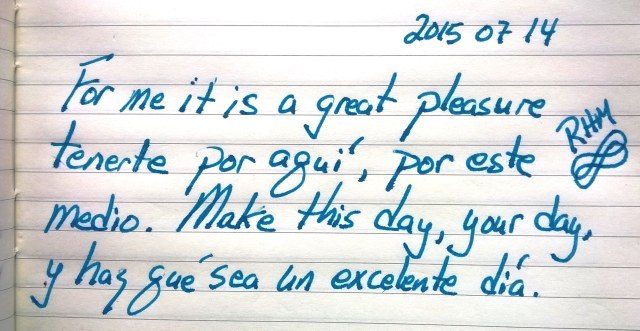 2015 07 14
For me it is a great pleasure
tenerte por aquí, por este
RHM
medio. Make this day, your day,
y haz qué sea un excelente día.